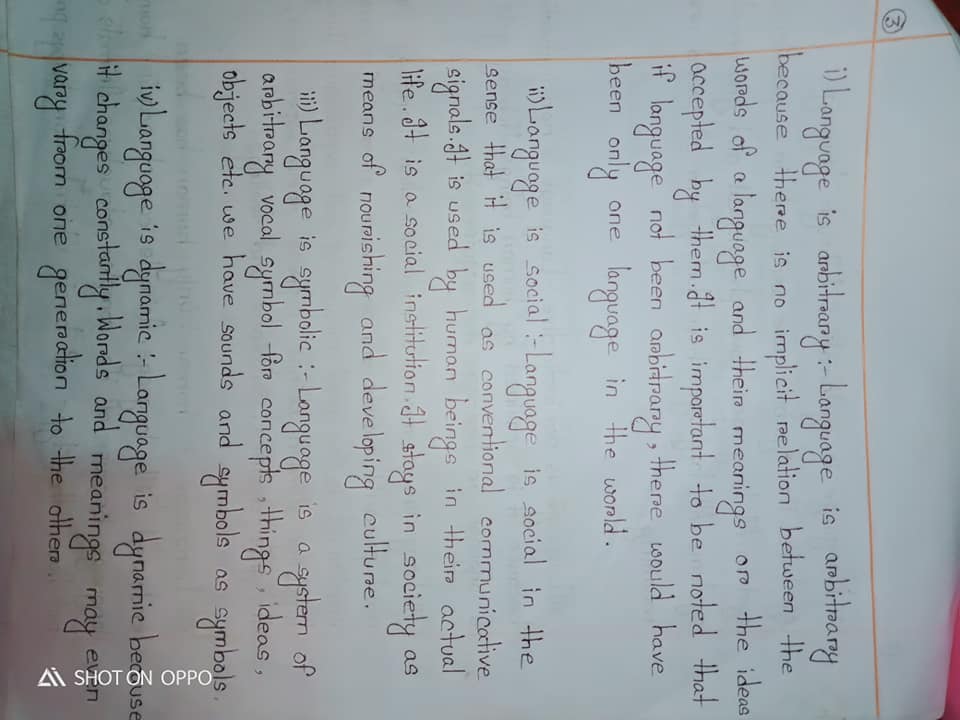 ③
i) Language is arbitrary:- Language is arbitrary
because there is no implicit relation between the
words of a language and their meanings or the ideas
accepted by them. It is important to be noted that
if language not been arbitrary, there would have
been only one language in the world.
ii) Language is social:- Language is social in the
sense that it is used as conventional communicative
signals. It is used by human beings in their actual
life. It is a social institution. It stays in society as
means of nourishing and developing culture.
iii) Language is symbolic:- Language is a system of
arbitrary vocal symbol for concepts, things, ideas,
objects etc. we have sounds and symbols as symbols.
iv) Language is dynamic:- Language is dynamic because
it changes constantly. Words and meanings may even
vary from one generation to the other.
SHOT ON OPPO